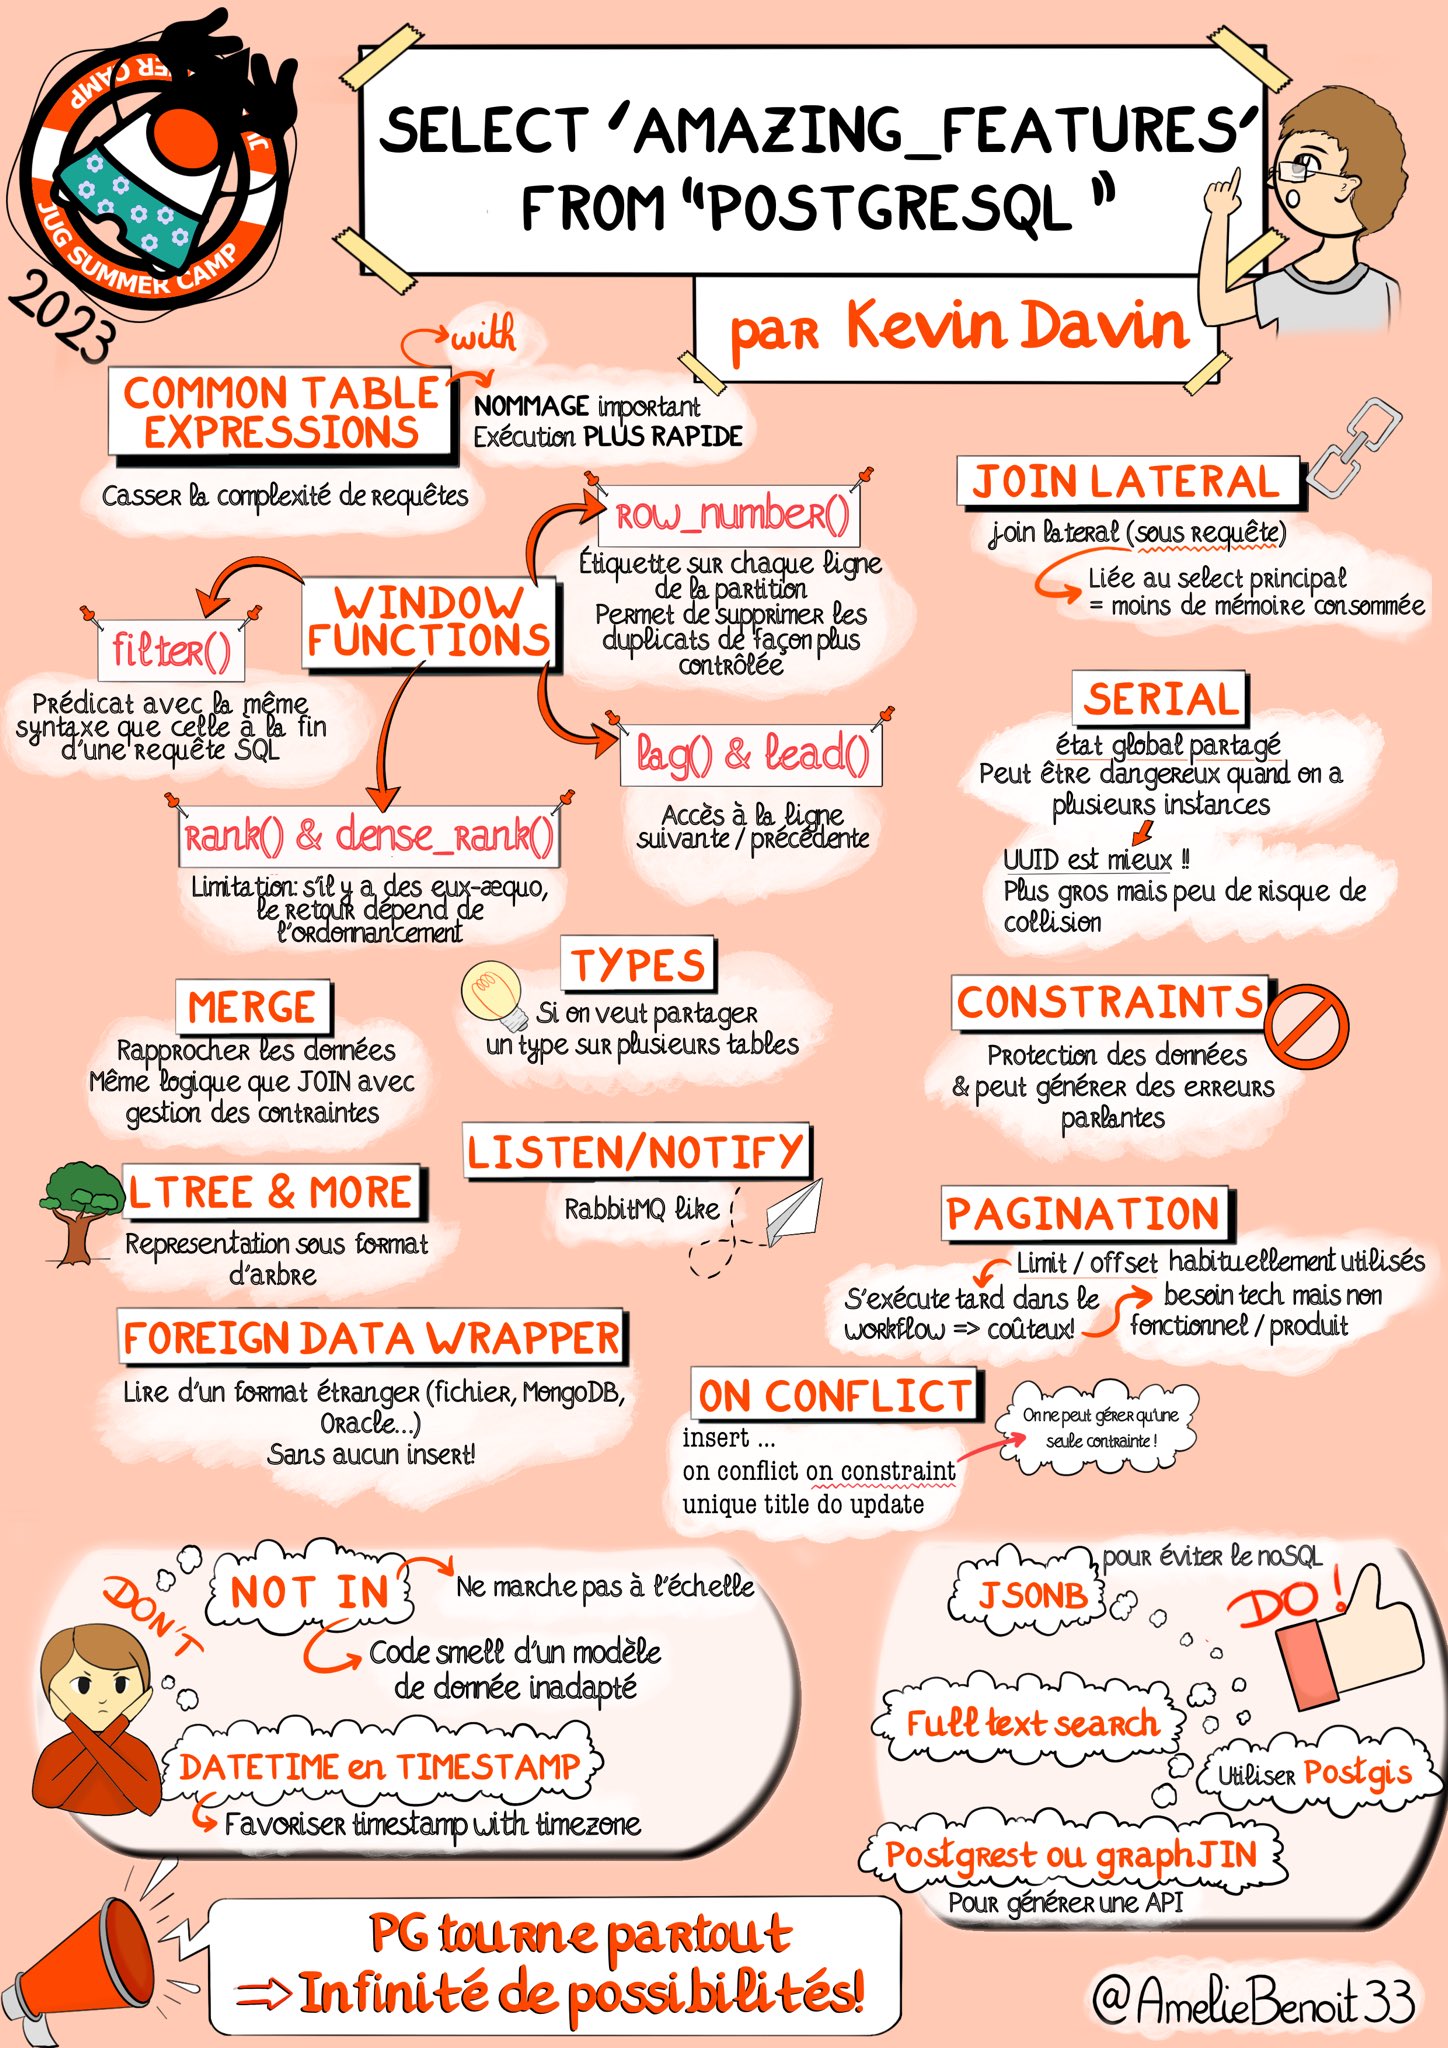 JUG SUMMER CAMP
2023
SELECT 'AMAZING_FEATURES'
FROM "POSTGRESQL"
par Kevin Davin
with
COMMON TABLE
EXPRESSIONS
NOMMAGE important
Exécution PLUS RAPIDE
Casser la complexité de requêtes
WINDOW
FUNCTIONS
row_number()
Étiquette sur chaque ligne
de la partition
Permet de supprimer les
duplicats de façon plus
contrôlée
filter()
Prédicat avec la même
syntaxe que celle à la fin
d'une requête SQL
lag() & lead()
Accès à la ligne
suivante / précédente
rank() & dense_rank()
Limitation: s'il y a des eux-æquo,
le retour dépend de
l'ordonnancement
JOIN LATERAL
join lateral (sous requête)
Liée au select principal
= moins de mémoire consommée
SERIAL
état global partagé
Peut être dangereux quand on a
plusieurs instances
UUID est mieux !!
Plus gros mais peu de risque de
collision
MERGE
Rapprocher les données
Même logique que JOIN avec
gestion des contraintes
TYPES
Si on veut partager
un type sur plusieurs tables
CONSTRAINTS
Protection des données
& peut générer des erreurs
parlantes
LTREE & MORE
Representation sous format
d'arbre
LISTEN/NOTIFY
RabbitMQ like
PAGINATION
Limit / offset habituellement utilisés
S'exécute tard dans le
workflow => coûteux!
besoin tech mais non
fonctionnel / produit
FOREIGN DATA WRAPPER
Lire d'un format étranger (fichier, MongoDB,
Oracle...)
Sans aucun insert!
ON CONFLICT
insert ...
on conflict on constraint
unique title do update
On ne peut gérer qu'une
seule contrainte !
DON'T
NOT IN
Ne marche pas à l'échelle
Code smell d'un modèle
de donnée inadapté
DATETIME en TIMESTAMP
Favoriser timestamp with timezone
DO !
JSONB
pour éviter le noSQL
Full text search
Utiliser Postgis
Postgrest ou graphJIN
Pour générer une API
PG tourne partout
=> Infinité de possibilités!
@AmelieBenoit33